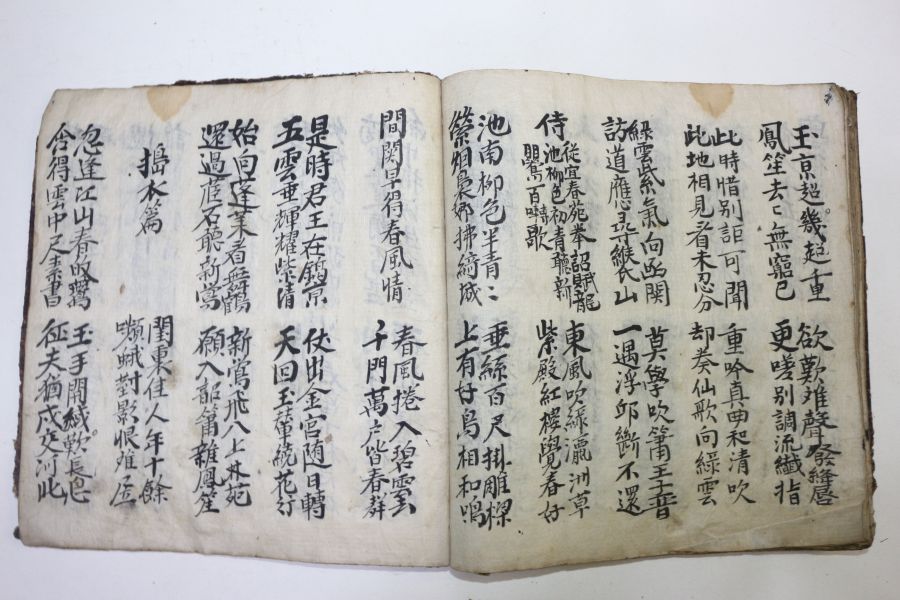 玉京超幾超重 欲歎难聲發絳唇
鳳笙去〻無窮已 更嗟別調流纖指
此時惜別詎可聞 重吟真曲和清吹
此地相見看未忍分 却奏仙歌向綠雲
綠雲紫氣向函関 莫學吹簫王子晉
訪道應尋緱氏山 一遇浮邱斷不還
侍從宜春苑奉詔賦龍池柳色初青聽新鶯百囀歌
東風吹綠瀛洲草
紫殿紅樓覺春好
池南柳色半青〻 垂絲百尺掛雕楹
縈烟裊娜拂綺城 上有好鳥相和鳴
間関早得春風情 春風捲入碧雲
千門萬户皆春群
是時君王在鎬京 仗出金宮随日轉
五雲垂輝耀紫清 天回玉輦繞花行
始向蓬莱看舞鶴 新鶯飛入上林苑
還過石聽新鶯 願入韶簫雜鳳笙
搗衣篇
閨東佳人年十餘
嚬蛾對影恨难居
忽逢江山春 玉手開緘歎長息
含得雲中尺素書 征夫猶戍交河北